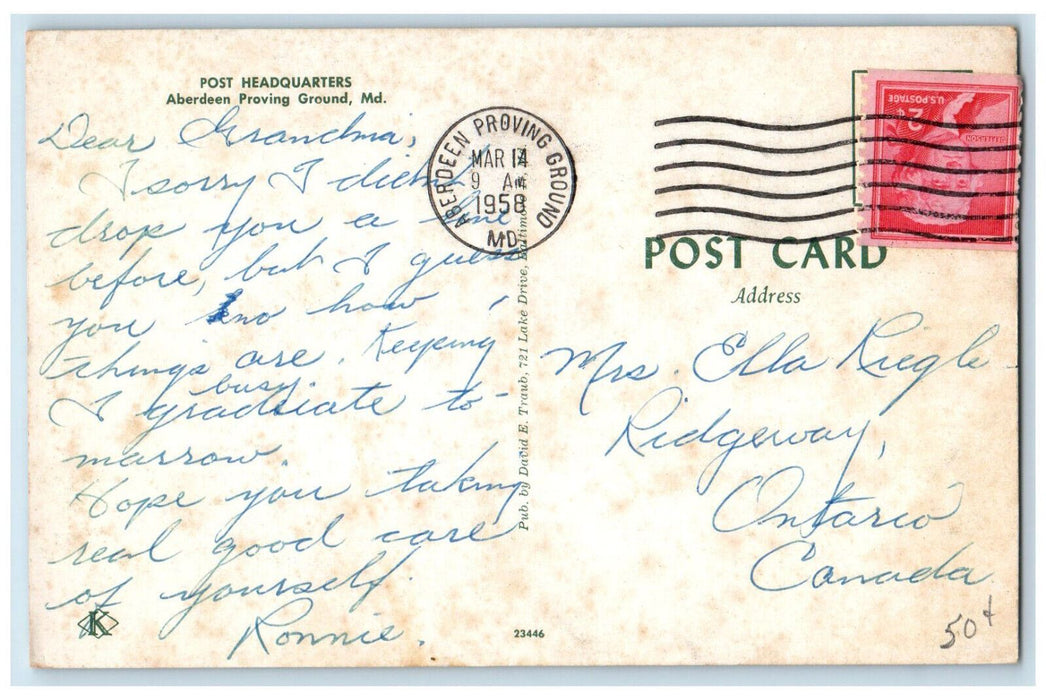 POST HEADQUARTERS
Aberdeen Proving Ground, Md.
Dear Grandma,
I sorry I didn't
drop you a line
before, but I guess
you kno how
things are. Keeping
busy.
I graduate to-
marrow.
Hope you taking
real good care
of yourself.
Ronnie.
K
23446
Pub. by David E. Traub, 721 Lake Drive, Baltimore
ABERDEEN PROVING GROUND
MAR 14
9 AM
1958
MD.
U.S. POSTAGE
2¢
JEFFERSON
POST CARD
Address
Mrs. Ella Riegle
Ridgeway,
Ontario
Canada
50¢